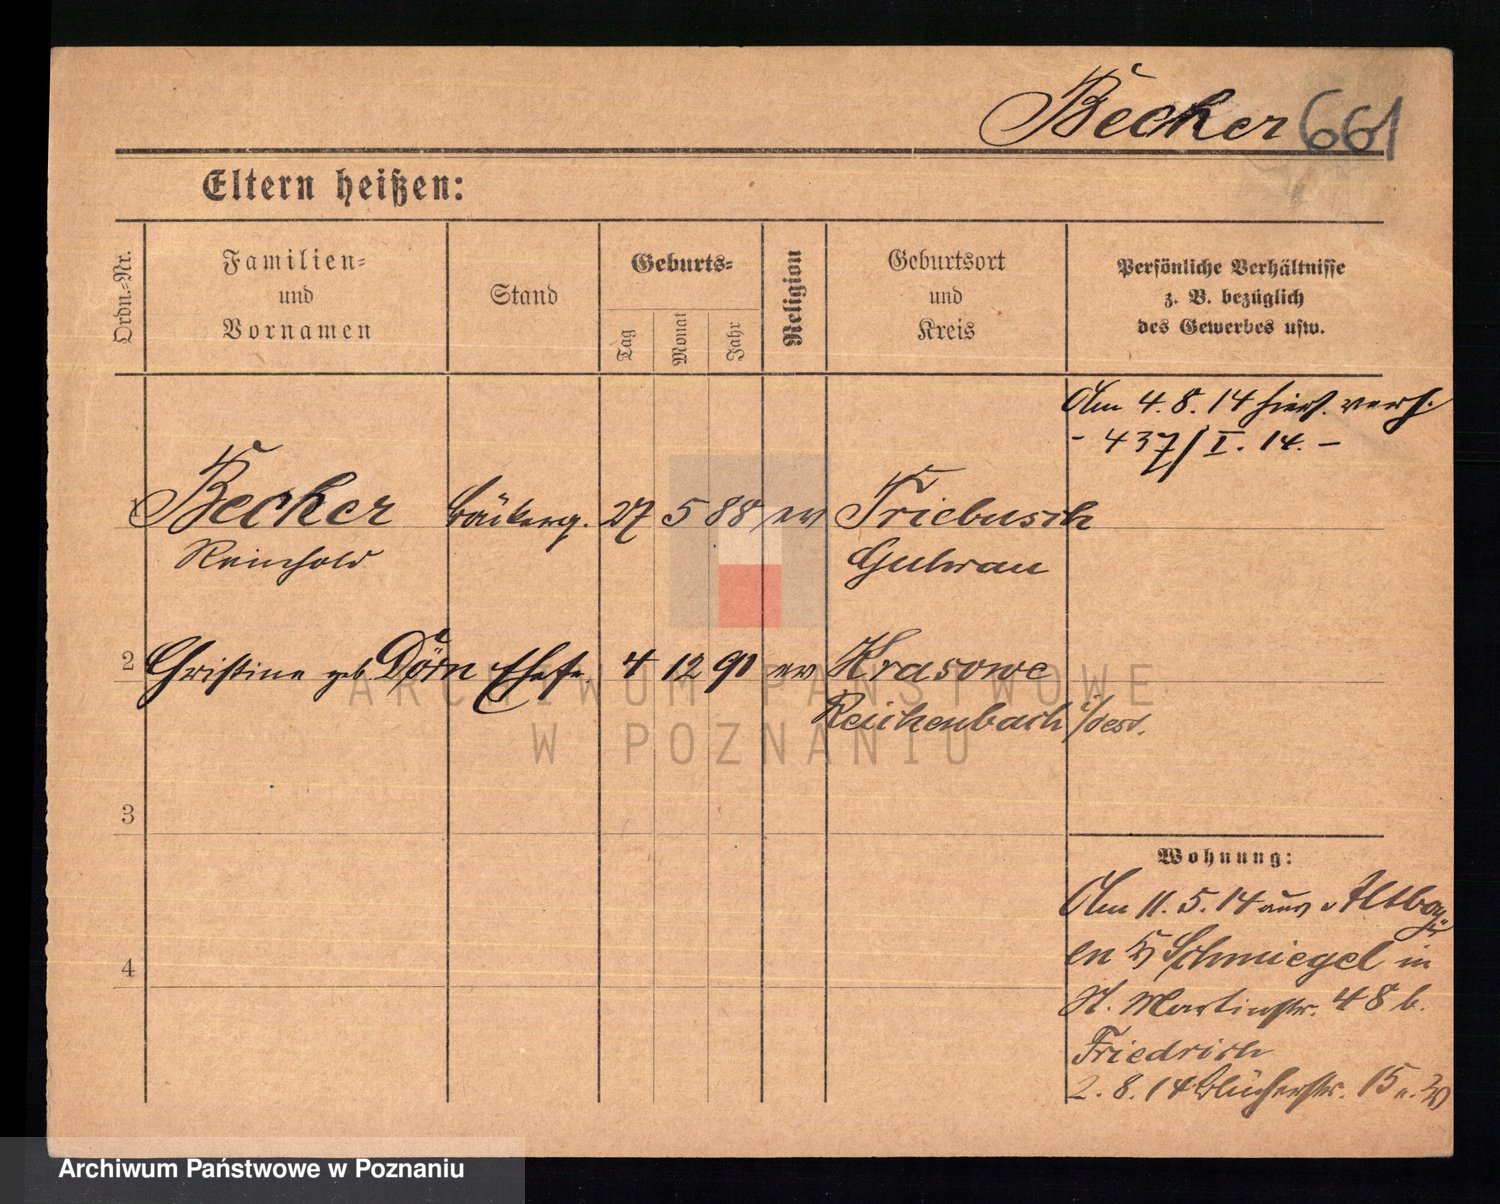 Becker 661
Eltern heißen:
Ordn.-Nr.
Familien-
und
Vornamen
Stand
Geburts-
Tag
Monat
Jahr
Religion
Geburtsort
und
Kreis
Persönliche Verhältnisse
z. B. bezüglich
des Gewerbes usw.
Am 4. 8. 14 hiers. verh.
- 437/I. 14. -
1 Becker Bäckerg. 27 5 88 ev Triebusch
Reinhold Guhrau
2 Christine geb Dörn Ehefr. 4 12 90 ev Krasowe
Reichenbach i/
3
4
Wohnung:
Am 11. 5. 14 aus Altboy-
en Schmiegel in
St. Martinstr. 48 b.
Friedrich
2. 8. 14 Blücherstr. 15
ARCHIWUM PAŃSTWOWE
W POZNANIU
Archiwum Państwowe w Poznaniu